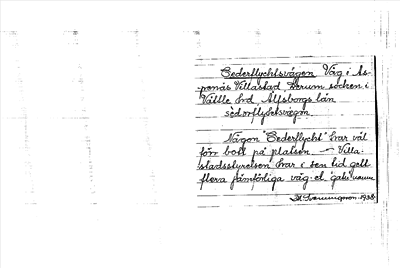 Cederflychtsvägen Väg i As-
penäs Villastad, Lerum socken i
Vättle hd, Älfsborgs län
sèderflyktsvä̀gen
Någon "Cederflycht" har väl
förr bott på platsen. — Villa-
stadsstyrelsen har i sen tid gett
flera jämförliga väg- el. gatunamn
1938